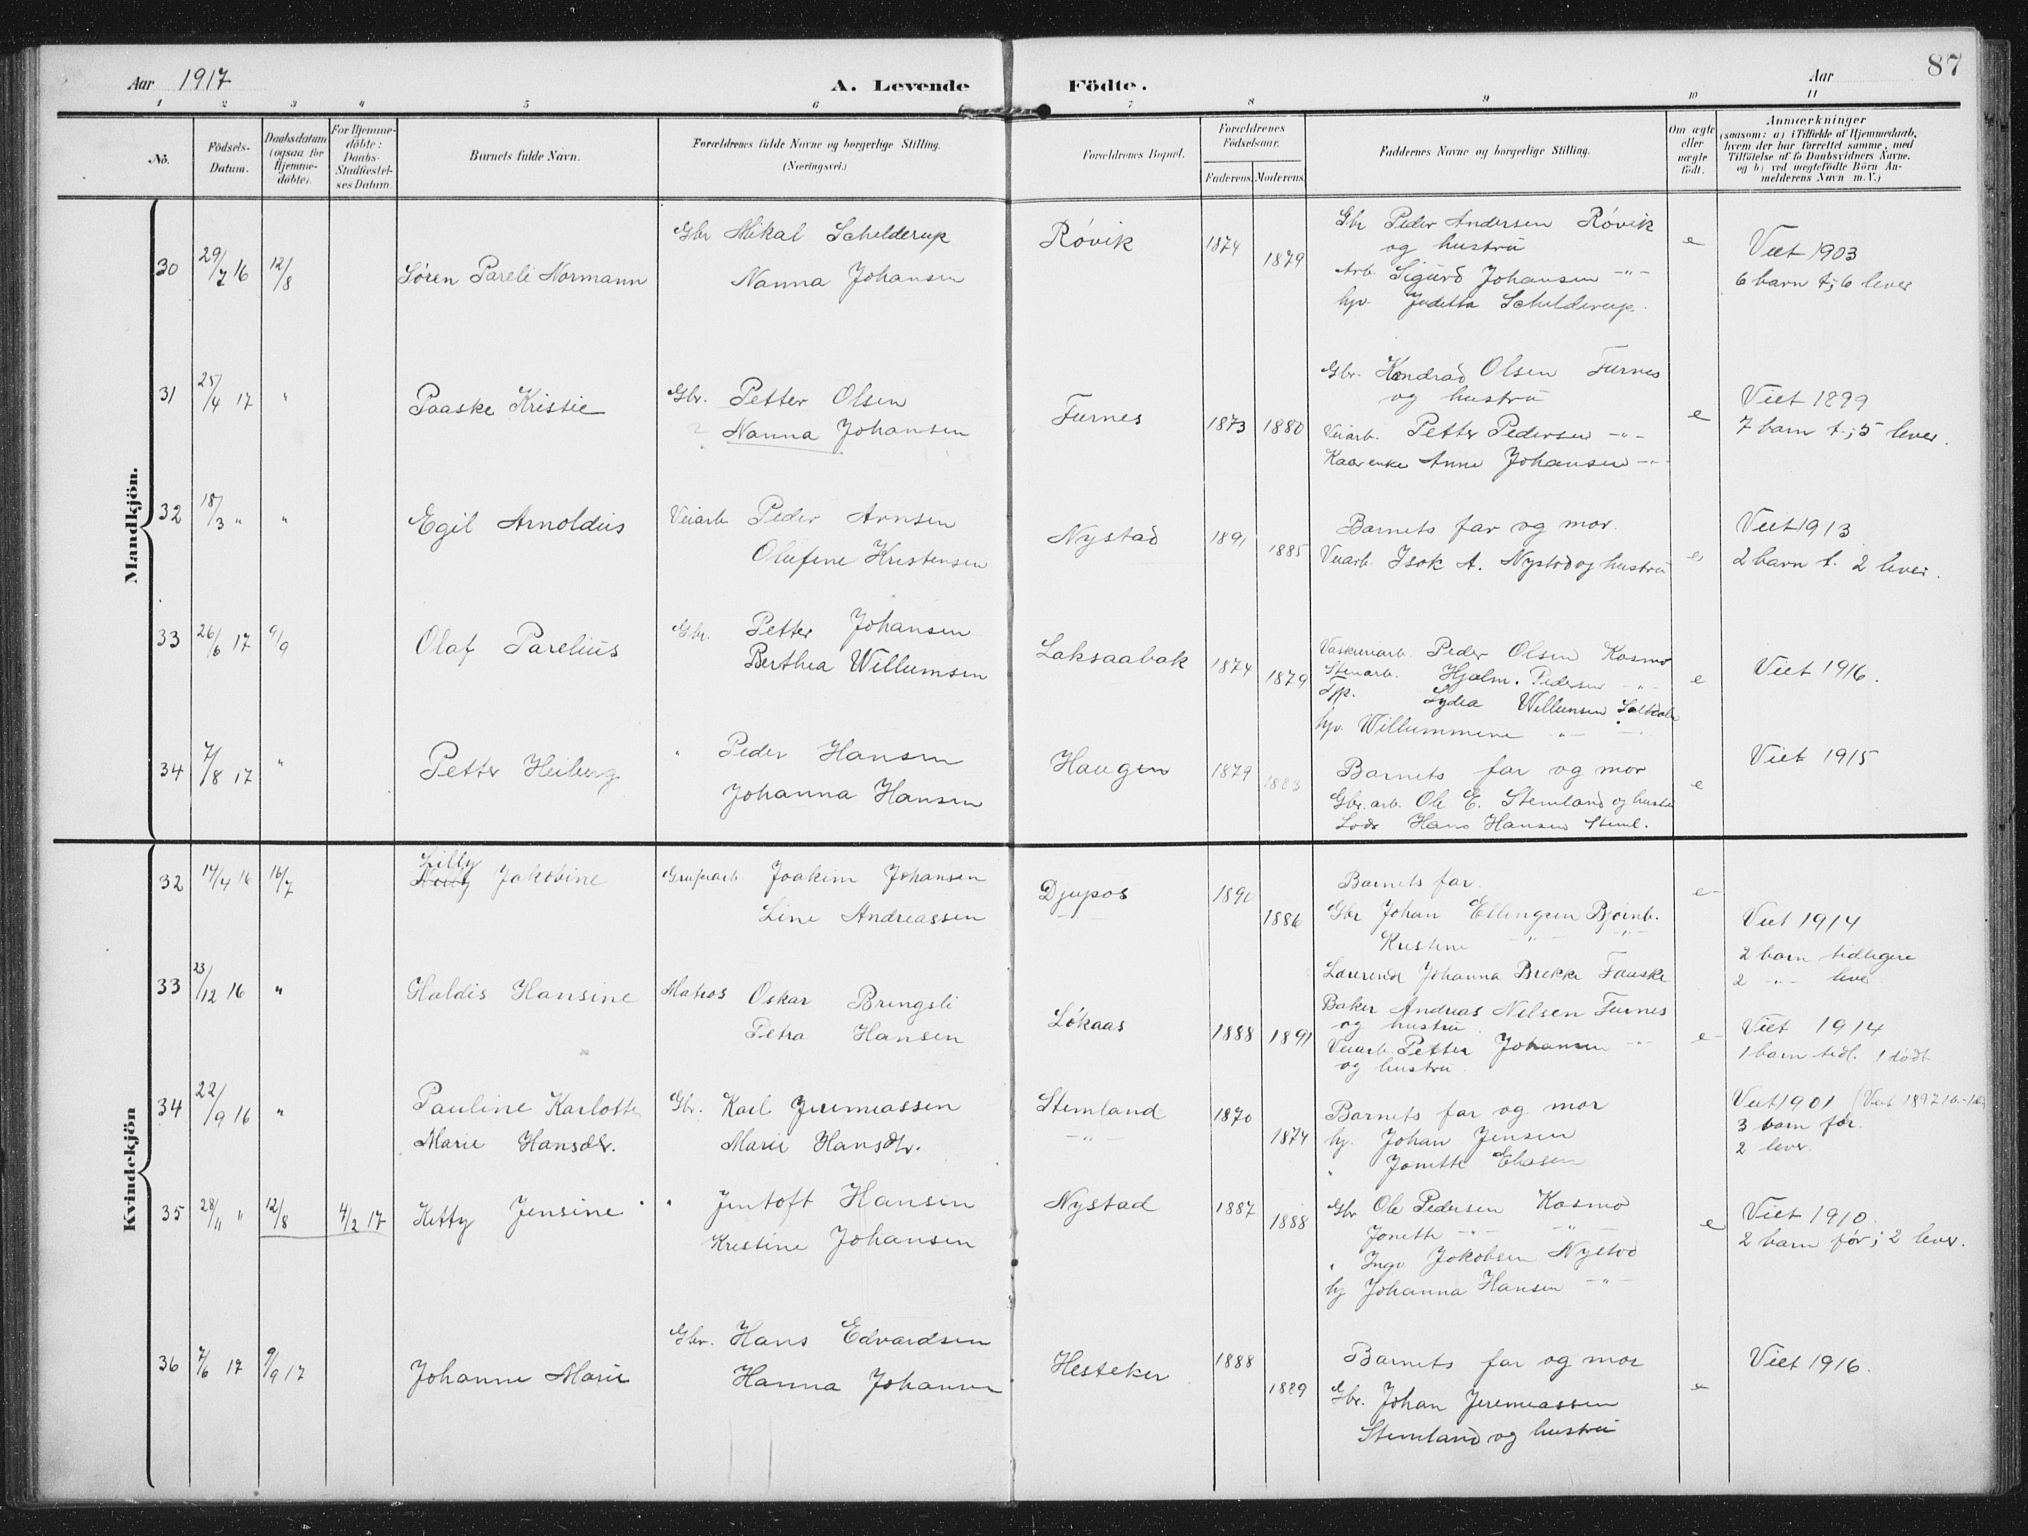 Aar 1917
A. Levende Födte.
Aar
87
1 2 3 4 5 6 7 8 9 10 11
No.
Födsels-Datum.
Daabsdatum (ogsaa for Hjemme-döbte).
For Hjemme-döbte: Daabs-Stadfæstel-ses Datum
Barnets fulde Navn.
Forældrenes fulde Navne og borgerlige Stilling.
(Næringsvei.)
Forældrenes Bopæl.
Forældrenes Födselsaar.
Faderens. Moderens.
Faddernes Navne og borgerlige Stilling.
Om ægte eller uægte födt.
Anmærkninger
(saasom: a) i Tilfælde af Hjemmedaab, hvem der har forrettet samme, med Tilföielse af to Daabsvidners Navne. og b) ved uægtefödte Börn An-melderens Navn m. V.)
Mandkjön.
30 29/7 16 12/8 Søren Pareli Normann
Gbr Mikal Schelderup
Nanna Johansen
Røvik 1874 1879
Gbr Peder Andersen Røvik
og hustru
Arb. Sigurd Johansen -"-
hjv. Jadetta Schelderup.
e
Viet 1903
6 barn t; 6 lever
31 25/4 17 " Paaske Kristie
Gbr. Petter Olsen
? Nanna Johansen
Furnes 1873 1880
Gbr. Kondrad Olsen Furnes
og hustru
Veiarb. Petter Pedersen -"-
Kaarenke Anne Johansen -"-
e
Viet 1899
7 barn t; 5 lever.
32 18/3 " " Egil Arnoldus
Veiarb Peder Arnsen
Olufine Kristensen
Nystad 1891 1885
Barnets far og mor.
Veiarb. Isak A. Nystad og hustru
e
Viet 1913
2 barn t. 2 lever.
33 26/6 17 9/9 Olaf Parelius
Gbr. Petter Johansen
Berthea Willumsen
Laksaabak 1874 1879
Vaskeriarb. Peder Olsen Kosmo
Stenarb. Hjalm. Pedersen -"-
Tjp. Lydia Willumsen
hjv. Willummine -"-
e
Viet 1916.
34 7/8 17 " Petter Heiberg
" Peder Hansen
Johanna Hansen
Haugen 1879 1883
Barnets far og mor
Gbr. arb. Ole E. Stemland og hustru
Lods Hans Hansen Steml.
e
Viet 1915
Kvindekjön
32 14/4 16 16/7 Lilly Jakobine
Grubarb. Joakim Johansen
Line Andreassen
Djupos 1890 1886
Barnets far.
Gbr Johan Ellingsen Bjørnb.
Kristine -"- -"-
Lærerinde Johanna Brekke Fauske
e
Viet 1914
2 barn tidligere
2 -"- lever
33 23/12 16 " Haldis Hansine
Matros Oskar Bringsli
Petra Hansen
Løkaas 1888 1891
Baker Andreas Nilsen Furnes
og hustru.
Veiarb. Petter Johansen -"-
og hustru.
e
Viet 1914
1 barn tidl. 1 dødt
34 22/9 16 " Pauline Karlotte
Marie Hansdtr.
Gbr. Karl Jeremiassen
Marie Hansdtr.
Stemland 1870
-"- 1874
Barnets far og mor
hj. Johan Jensen
" Jonette Eliasen
Viet 1901 (Viet 1897
3 barn før.
2 lever.
35 28/11 " 12/8 4/2 17 Ketty Jensine
" Jentoft Hansen
Kristine Johansen
Nystad 1887 1888
Gbr Ole Pedersen Kosmo
Jonette -"- -"-
" Inga Jakobsen Nystad
hj Johanna Hansen -"-
e
Viet 1910
2 barn før; 2 lever.
36 7/6 17 9/9 17 Johanne Marie
Gbr. Hans Edvardsen
Hanna Johansen
Hesteker 1888 1889
Barnets far og mor
Gbr. Johan Jeremiassen
Stemland og hustru
e
Viet 1916.